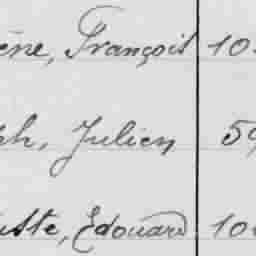 ène, François 10
ph, Julien 59
uste, Edouard 10